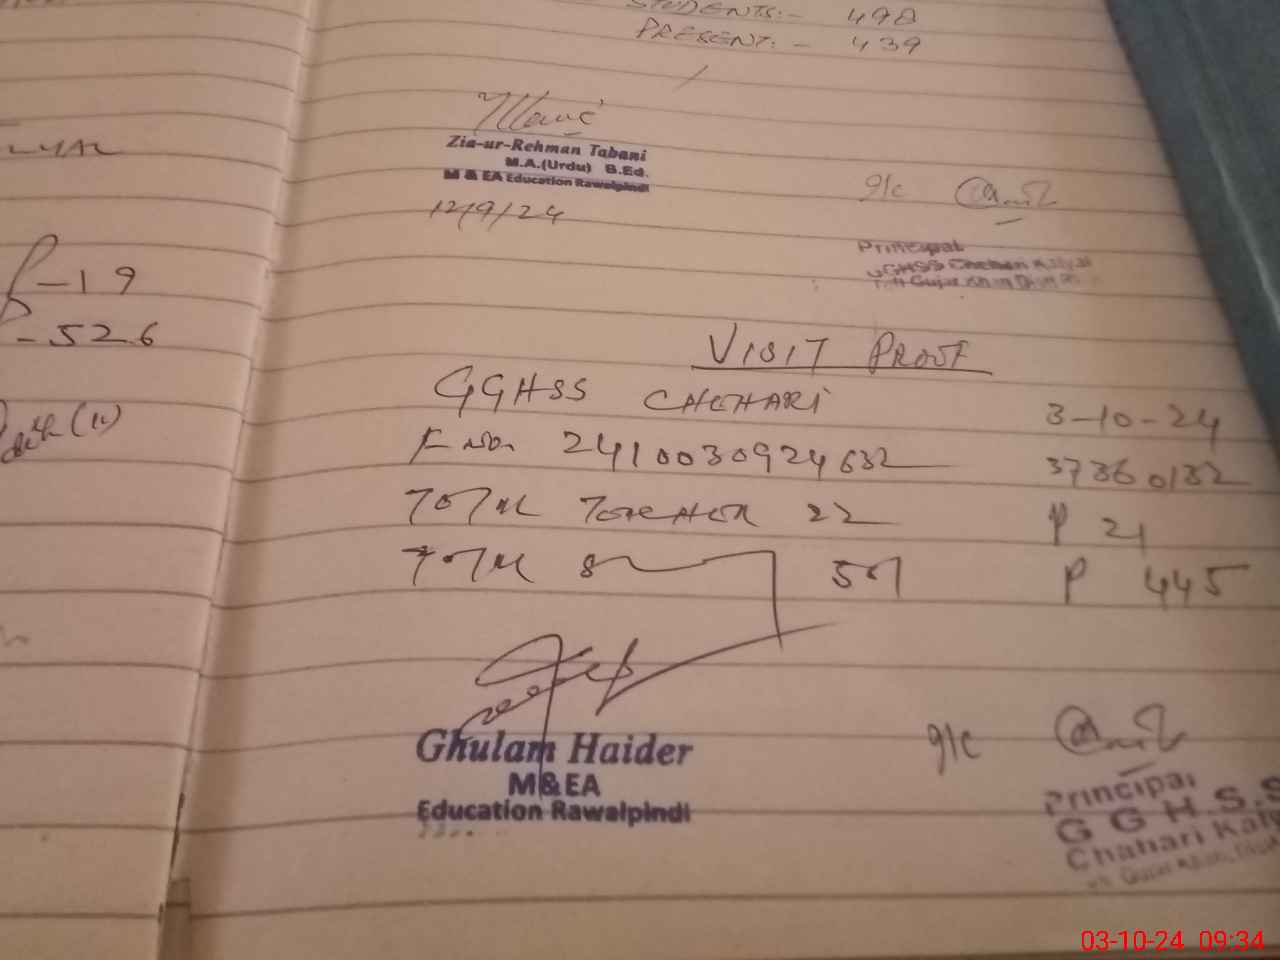 STUDENTS:- 498
PRESENT:- 439
Zia-ur-Rehman Tabani
M.A.(Urdu) B.Ed.
M & EA Education Rawalpindi
12/9/24
I/c
Principal
GGHSS Chehari Kalyal
Gujar Khan Distt
-19
-526
VISIT PROOF
GGHSS CHEHARI 3-10-24
F No. 2410030924632 37360132
TOTAL TEACHER 22 P 21
TOTAL S 501 P 445
Ghulam Haider
M&EA
Education Rawalpindi
I/c
Principal
G G H.S.S
Chahari Kaly
Gujar Khan,
03-10-24 09:34